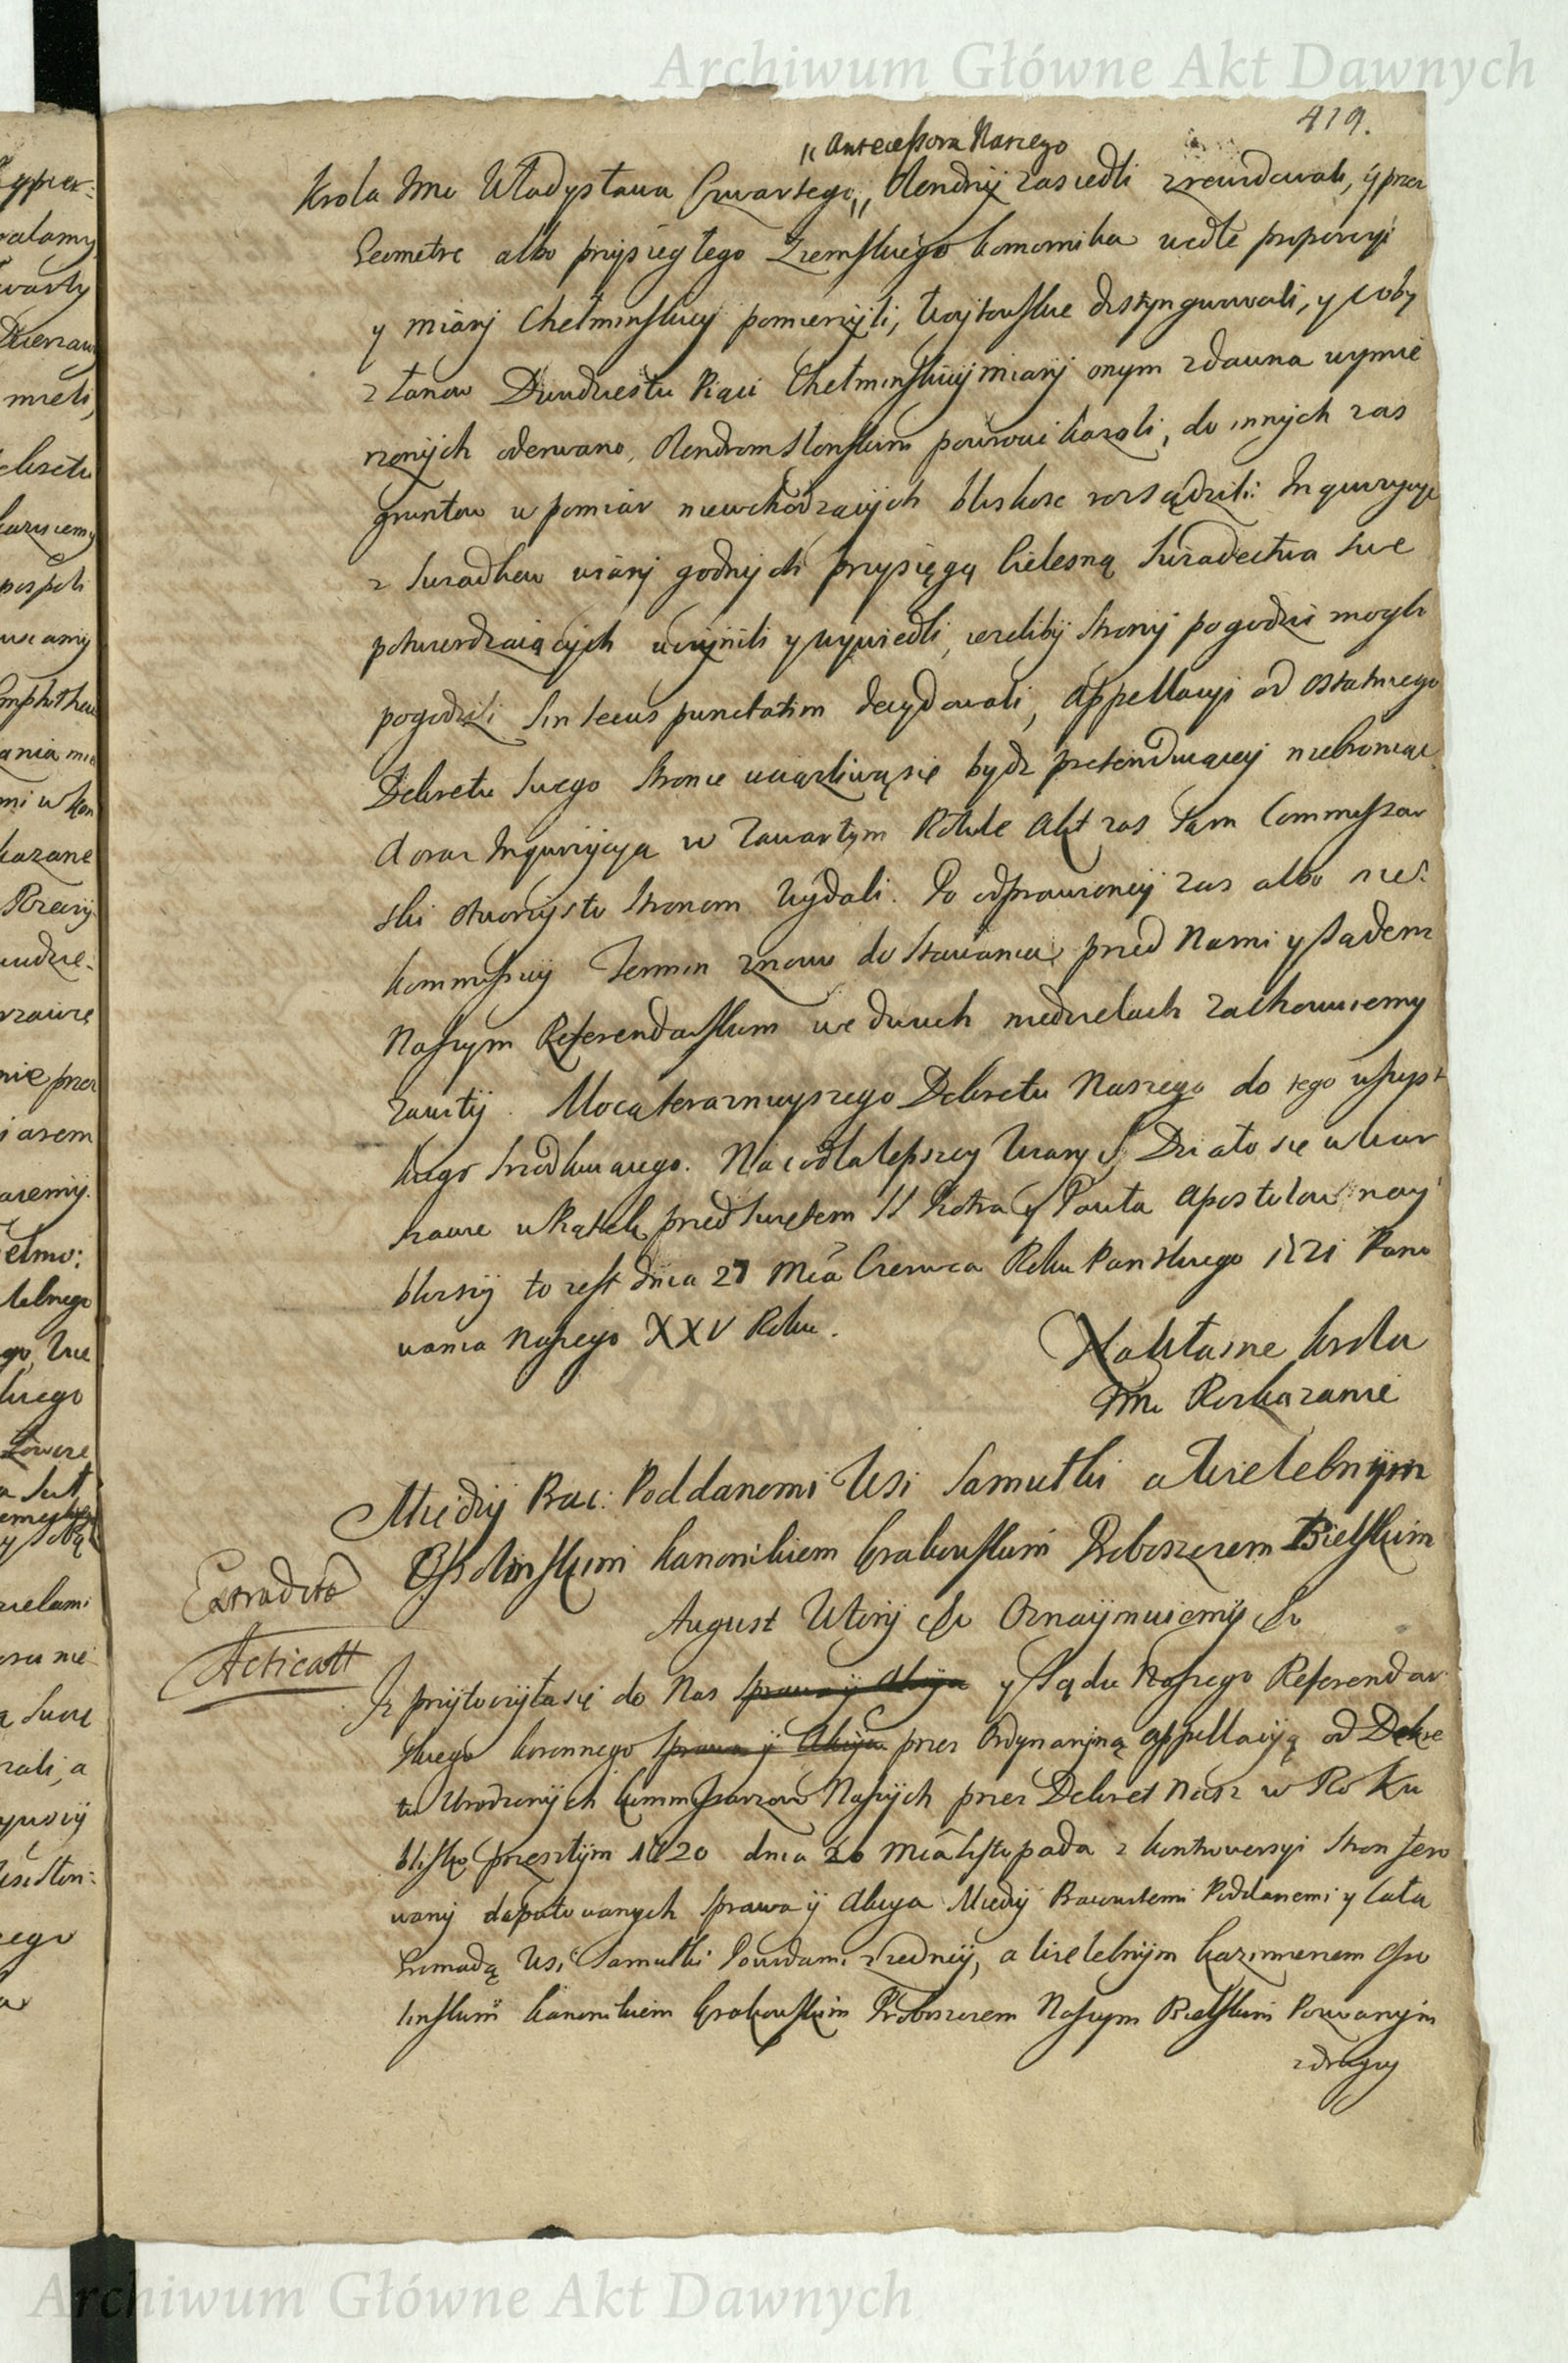 Archiwum Główne Akt Dawnych
419.
"Antecessora Naszego
Krola Jmci Władysława Czwartego,, Olendrzy zasiedli zrewidowali, y przez
Geometrę albo przysięgłego Ziemskiego Komornika wedle proporcyi
y miary Chełminskiey pomierzyli, Woytowskie distyngwowali, y coby
z Łanow Dwudziestu Pięci Chełminskiey miary onym zdawna wymie
rzonych oderwano, Olendrom Slonskim powrocic kazali, do innych zas
gruntow w pomiar niewchodzących bliskosc rozsądzili. Inquizycye
z Swiadkow wiary godnych przysięgą Cielesną Swiadectwa swe
potwierdzaiących uczynili y wywiedli, iezeliby strony pogodzic mogli
pogodzili sin secus punctatim decydowali, appellacyi od ostatniego
Dekretu swego stronie uciązliwą się bydz pretenduiącey niebroniąc
A oraz Inquizycya w Zawartym Rotule Akt zas sam Commissar
ski otworzysto stronom wydali. Po odprawioney zas albo nie
Kommissyi Termin znowu do stawania przed Nami y Sądem
Naszym Referendarskim we dwuch niedzielach zachowuiemy
zawity. Mocą teraznieyszego Dekretu Naszego do tego wszyst
kiego srzodkuiącego. Na co dla lepszey Wiary &. Działo się w War
szawie w Piątek przed Swiętem SS Piotra y Pawła Apostołow nay
blizszy to iest dnia 27 Mca Czerwca Roku Panskiego 1721 Pano
wania Naszego XXV Roku.
Na Własne Krola
Jmci Rozkazanie
Między Prac: Poddanemi Wsi Samułki a Wielebnym
Ossolinskim Kanonikiem Krakowskim Proboszczem Bielskim
Extradite
August Wtory &c Oznaymuiemy &c
Acticatt
Iz przytoczyła się do Nas sprawa y Akcya y Sądu Naszego Referendar
skiego Koronnego sprawa y Akcya przez Ordynaryiną appellacyą od Dekre
tu Urodzonych Kommissarzow Naszych przez Dekret Nasz w Roku
blisko przeszłym 1720 dnia 20 Mca Listopada z kontrowersyi stron fero
wany deputowanych sprawa y Akcya Między Pracowitemi Poddanemi y Całą
Gromadą Wsi Samułki Powodami z iedney, a Wielebnym Kazimierzem Osso
linskim Kanonikiem Krakowskim Proboszczem Naszym Bielskim Pozwanym
z drugiey
Archiwum Główne Akt Dawnych